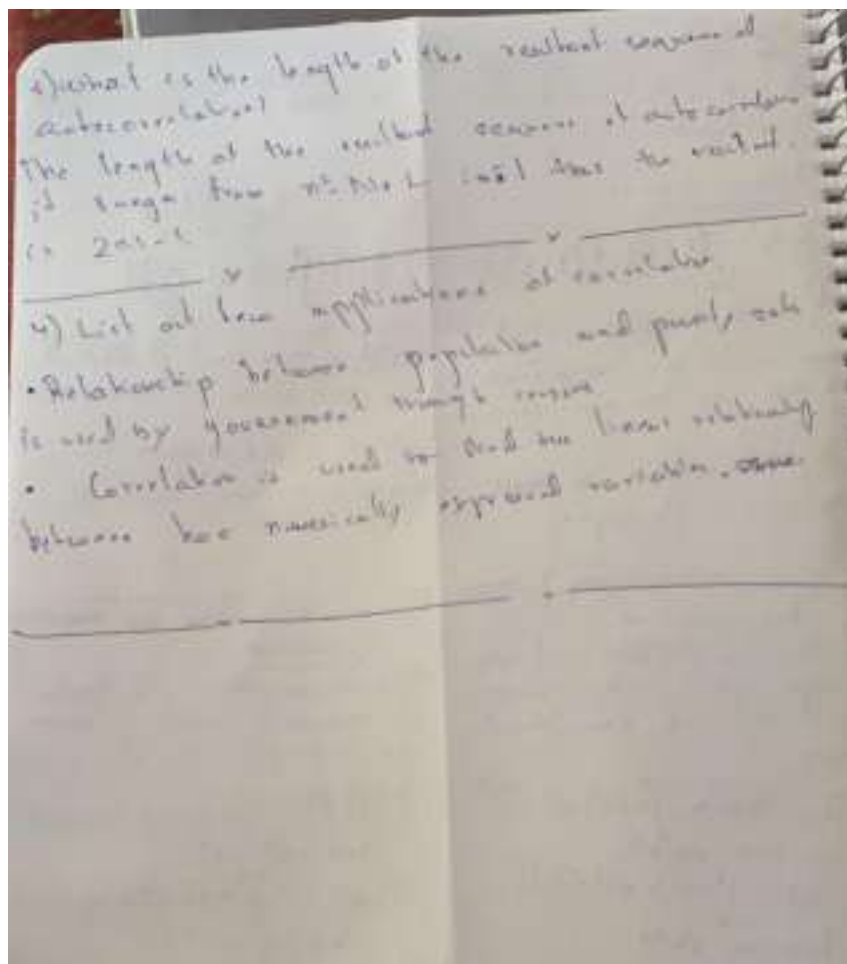 what is the length of the resultant sequence of
autocorrelation?
The length of the resultant sequence of autocorrelation
it range from the resultant
is
4) List out two applications of correlation
• Relationship between population and poverty rate
is used by government through census
• Correlation is used to find the linear relationship
between two numerically expressed variables.